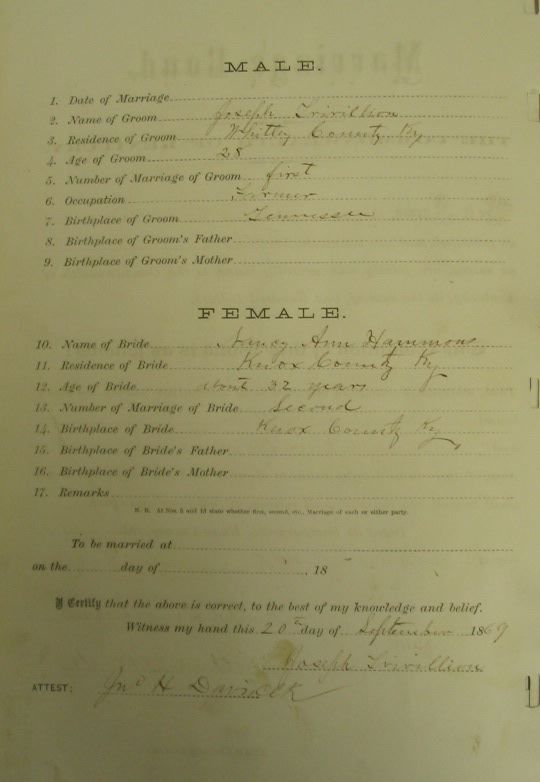 MALE.
1. Date of Marriage
2. Name of Groom Joseph Trivillion
3. Residence of Groom Whitley County Ky
4. Age of Groom 28
5. Number of Marriage of Groom first
6. Occupation Farmer
7. Birthplace of Groom Tennessee
8. Birthplace of Groom's Father
9. Birthplace of Groom's Mother
FEMALE.
10. Name of Bride Nancy Ann Hammons
11. Residence of Bride Knox County Ky
12. Age of Bride about 32 years
13. Number of Marriage of Bride Second
14. Birthplace of Bride Knox County Ky
15. Birthplace of Bride's Father
16. Birthplace of Bride's Mother
17. Remarks
N. B. At Nos. 5 and 13 state whether first, second, etc., Marriage of each or either party.
To be married at
on the day of , 18
I Certify that the above is correct, to the best of my knowledge and belief.
Witness my hand this 20th day of September 1869
Joseph Trivillion
ATTEST: Jno H